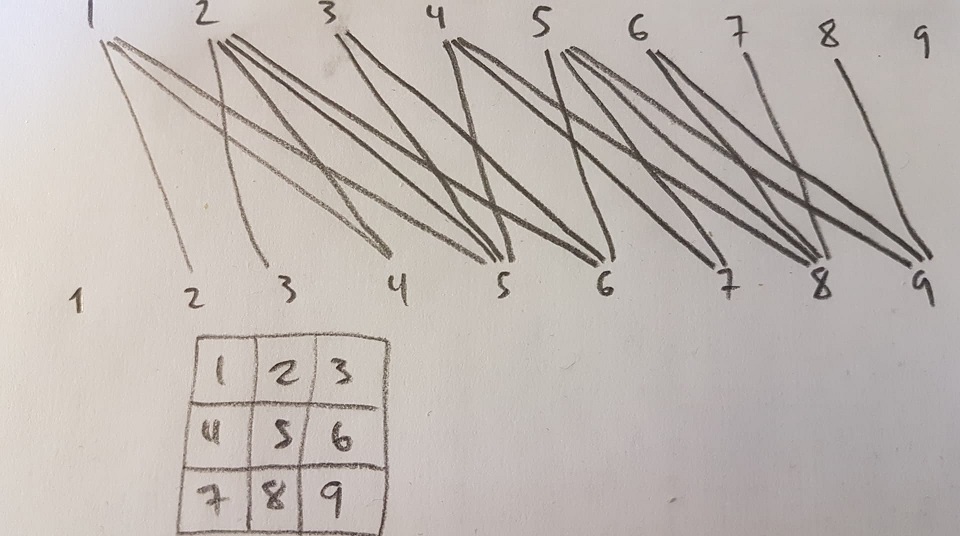 1 2 3 4 5 6 7 8 9
1 2 3 4 5 6 7 8 9
1 2 3
4 5 6
7 8 9